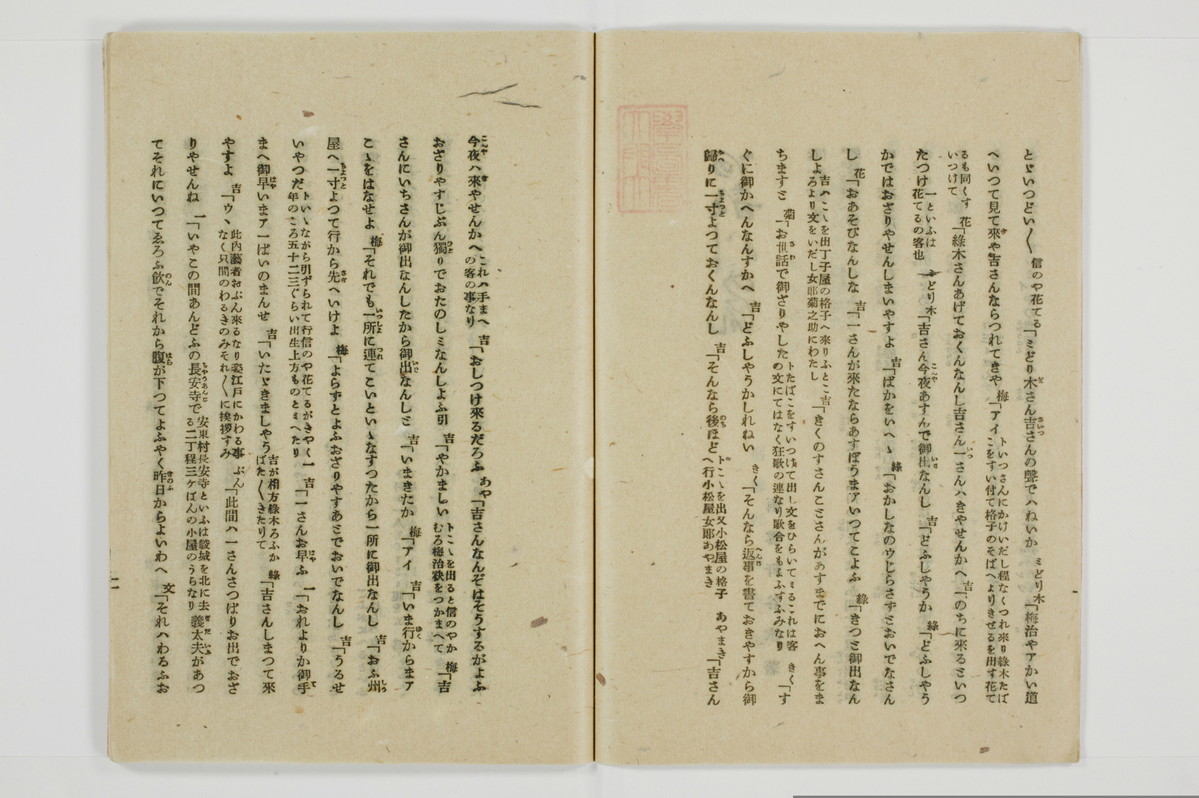 とゞいつどい〳〵 信のや花てる 「ミどり木さん吉さんの聲でハねいか ミどり木 「梅治やアかい道
へいつて見て來や吉さんならつれてきや 梅 「アイ トいつさんにかけいだし程なくつれ來り緑木たば こをすい付て格子のそばへよりきせるを出す花て
るも同くす いつけて 花 「緑木さんあげておくんなんし吉さん一さんハきやせんかへ 吉 「のちに來るといつ
たつけ 一といふは 花てるの客也 ミどり木 「吉さん今夜あすんで御出なんし 吉 「どふしやうか 緑 「どふしやう
かではおざりやせんしまいやすよ 吉 「ばかをいへゝ 緑 「おかしなのウじらさずとおいでなさん
し 花 「おあそびなんしな 吉 「一さんが來たならあすぼうまアいつてこよふ 緑 「きつと御出なん
しよ 吉ハこゝを出丁子屋の格子へ來りふとこ ろより文をいだし女郎菊之助にわたし 吉 「きくのすさんことさんがあすまでにおへん事をま
ちますと 菊 「お世話で御ざりやした トたばこをすいつけて出し文をひらいてミるこれは客 の文にてはなく狂歌の連なり歌合をもよふすふみなり きく 「す
ぐに御かへんなんすかへ 吉 「どふしやうかしれねい きく 「そんなら返事を書ておきやすから御
歸りに一寸よつておくんなんし 吉 「そんなら後ほど トこゝを出又小松屋の格子 へ行小松屋女郎あやまき あやまき 「吉さん
今夜ハ來やせんかへ これハ手まへ の客の事なり 吉 「おしつけ來るだろふ あや 「吉さんなんぞはそうするがよふ
おざりやすじぶん獨りでおたのしミなんしよふ引 吉 「やかましい トこゝを出ると信のやか むろ梅治袂をつかまへて 梅 「吉
さんにいちさんが御出なんしたから御出なんしと 吉 「いまきたか 梅 「アイ 吉 「いま行からまア
こゝをはなせよ 梅 「それでも一所に連てこいといゝなすつたから一所に御出なんし 吉 「おふ州
屋へ一寸よつて行から先へいけよ 梅 「よらずとよふおざりやすあとでおいでなんし 吉 「うるせ
いやつだ トいゝながら引ずられて行信のや花てるがきやく一 年のころ五十二三ぐらい出生上方ものとミへたり 吉 「一さんお早ふ 一 「おれよりか御手
まへ御早いまア一ぱいのまんせ 吉 「いたゞきましやう 吉が相方緑木ろふか ばた〳〵きたりて 緑 「吉さんしまつて來
やすよ 吉 「ウヽ 此内藝者おぶん来るなり姿江戸にかわる事 なく只間のわるきのみそれ〳〵に挨拶すみ ぶん 「此間ハ一さんさつぱりお出でおざ
りやせんね 一 「いやこの間あんどふの長安寺で 安東村長安寺といふは駿城を北に去 る二丁程三ケばんの小屋のうらなり 義太夫があつ
てそれにいつてゑろふ飲でそれから腹が下つてよふやく昨日からよいわへ 文 「それハわるふお
二